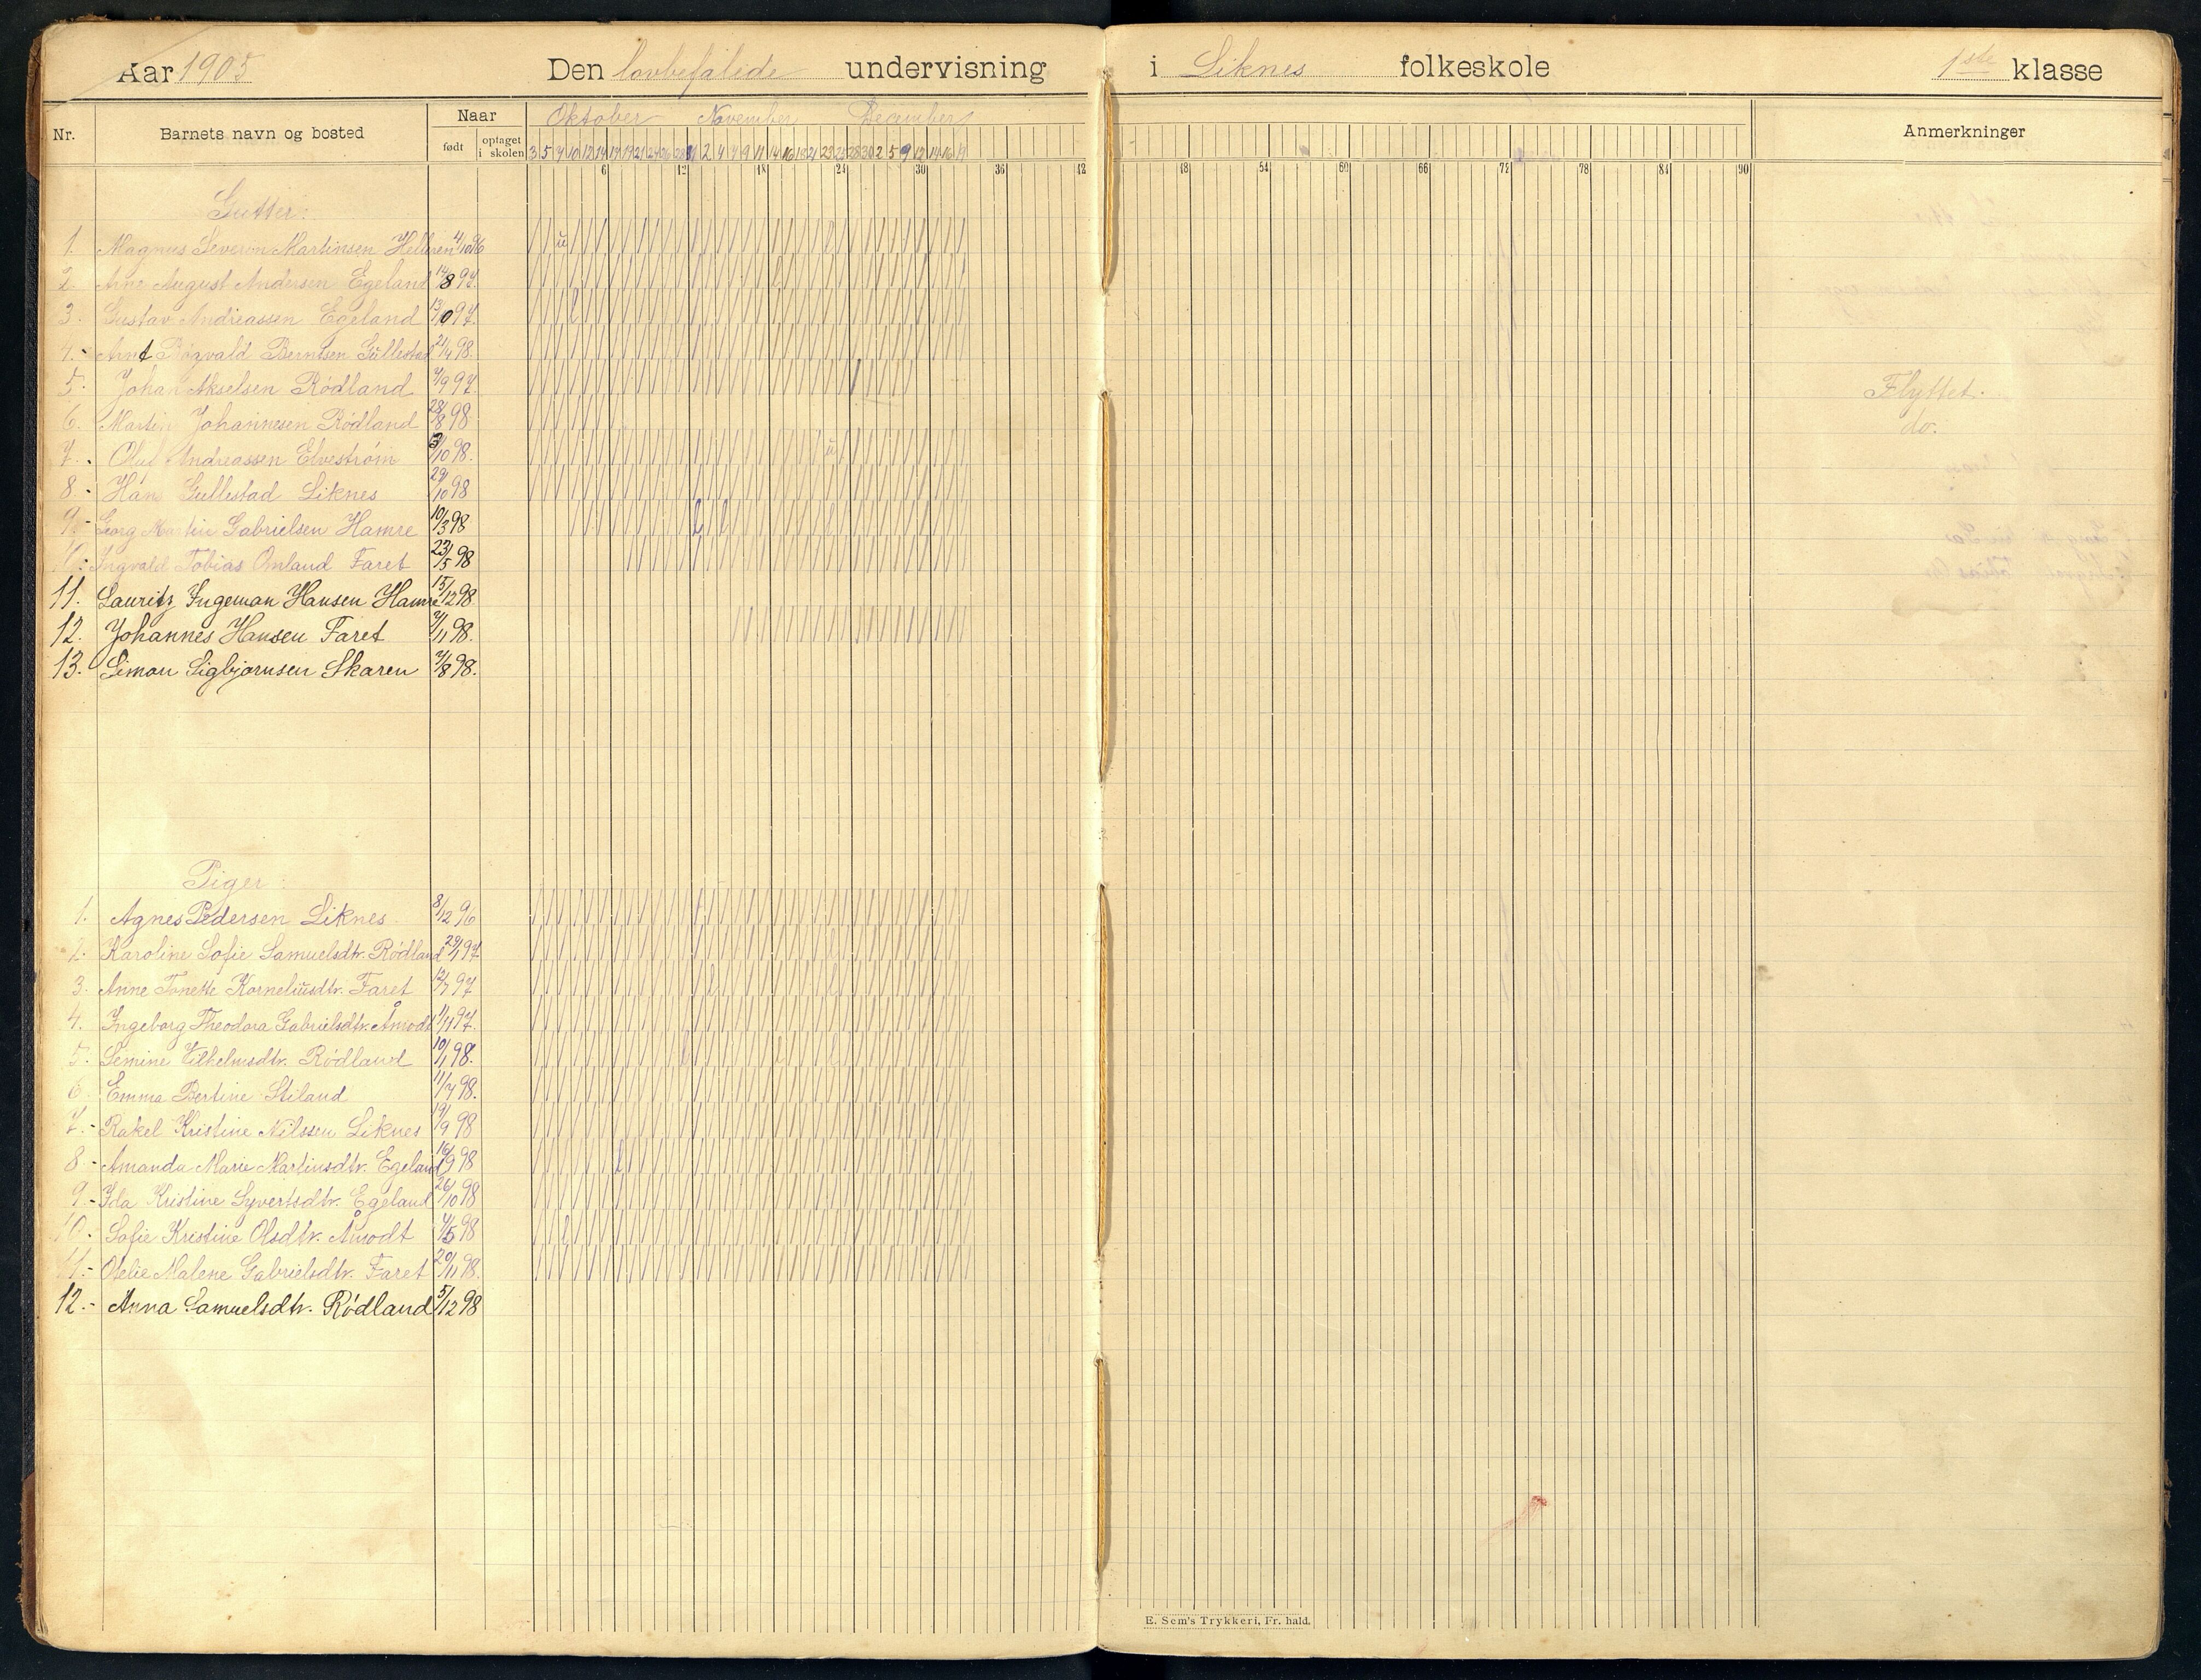 Aar 1905 Den lovbefalede undervisning i Liknes folkeskole 1ste klasse
Nr. Barnets navn og bosted Naar Oktober November December Anmerkninger
født optaget i skolen
6 12 18 24 30 36 42 48 54 60 66 72 78 84 90
Gutter:
1. Magnus Severin Martinsen Helleren 4/10 96
2. Arne August Andersen Egeland 14/8 97.
3. Gustav Andreassen Egeland 13/10 97.
4. Arnt Berntsen Gullestad 21/4 98.
5. Johan Akselsen Rødland 4/9 97. Flyttet.
6. Martin Johannesen Rødland 28/8 98 do.
7. Oluf Andreassen Elvestrøm 3/10 98.
8. Hans Gullestad Liknes 29/10 98
9. Georg Martin Gabrielsen Hamre 10/3 98
10. Ingvald Tobias Omland Faret 23/5 98
11. Lauritz Ingeman Hansen Hamre 15/12 98
12. Johannes Hansen Faret 2/11 98.
13. Simon Sigbjørnsen Skaren 7/8 98.
Piger:
1. Agnes Pedersen Liknes 8/12 96
2. Karoline Sofie Samuelsdtr. Rødland 29/1 97
3. Anne Tonette Korneliusdtr. Faret 12/7 97
4. Ingeborg Theodora Gabrielsdtr. Åmodt 1/11 97.
5. Semine Vilhelmsdtr. Rødland 10/1 98.
6. Emma Bertine Stiland 11/7 98.
7. Rakel Kristine Nilssen Liknes 19/9 98
8. Amanda Marie Martinsdtr. Egeland 16/9 98
9. Ida Kristine Syvertsdtr. Egeland 26/10 98
10. Sofie Kristine Olsdtr. Åmodt 4/5 98
11. Ofelie Malene Gabrielsdtr. Faret 20/11 98.
12. Anna Samuelsdtr. Rødland 5/12 98
E. Sem's Trykkeri, Fr. hald.